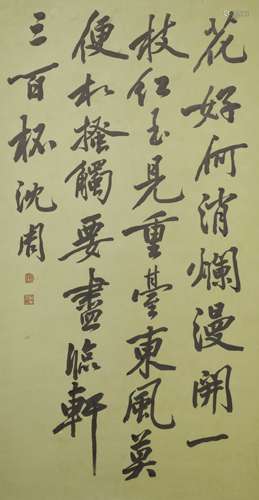 花好何消爛漫開一
枝紅玉見重臺東風莫
便相搔觸要盡臨軒
三百杯沈周